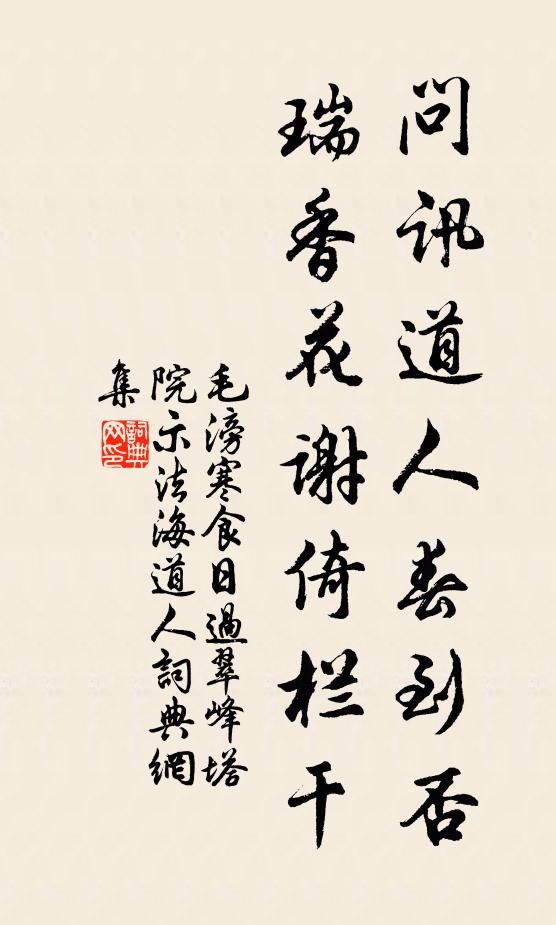 問訊道人春到否
瑞香花谢倚栏干
毛滂寒食日過翠峰塔
院示法海道人詞典網
集
詞典
网印